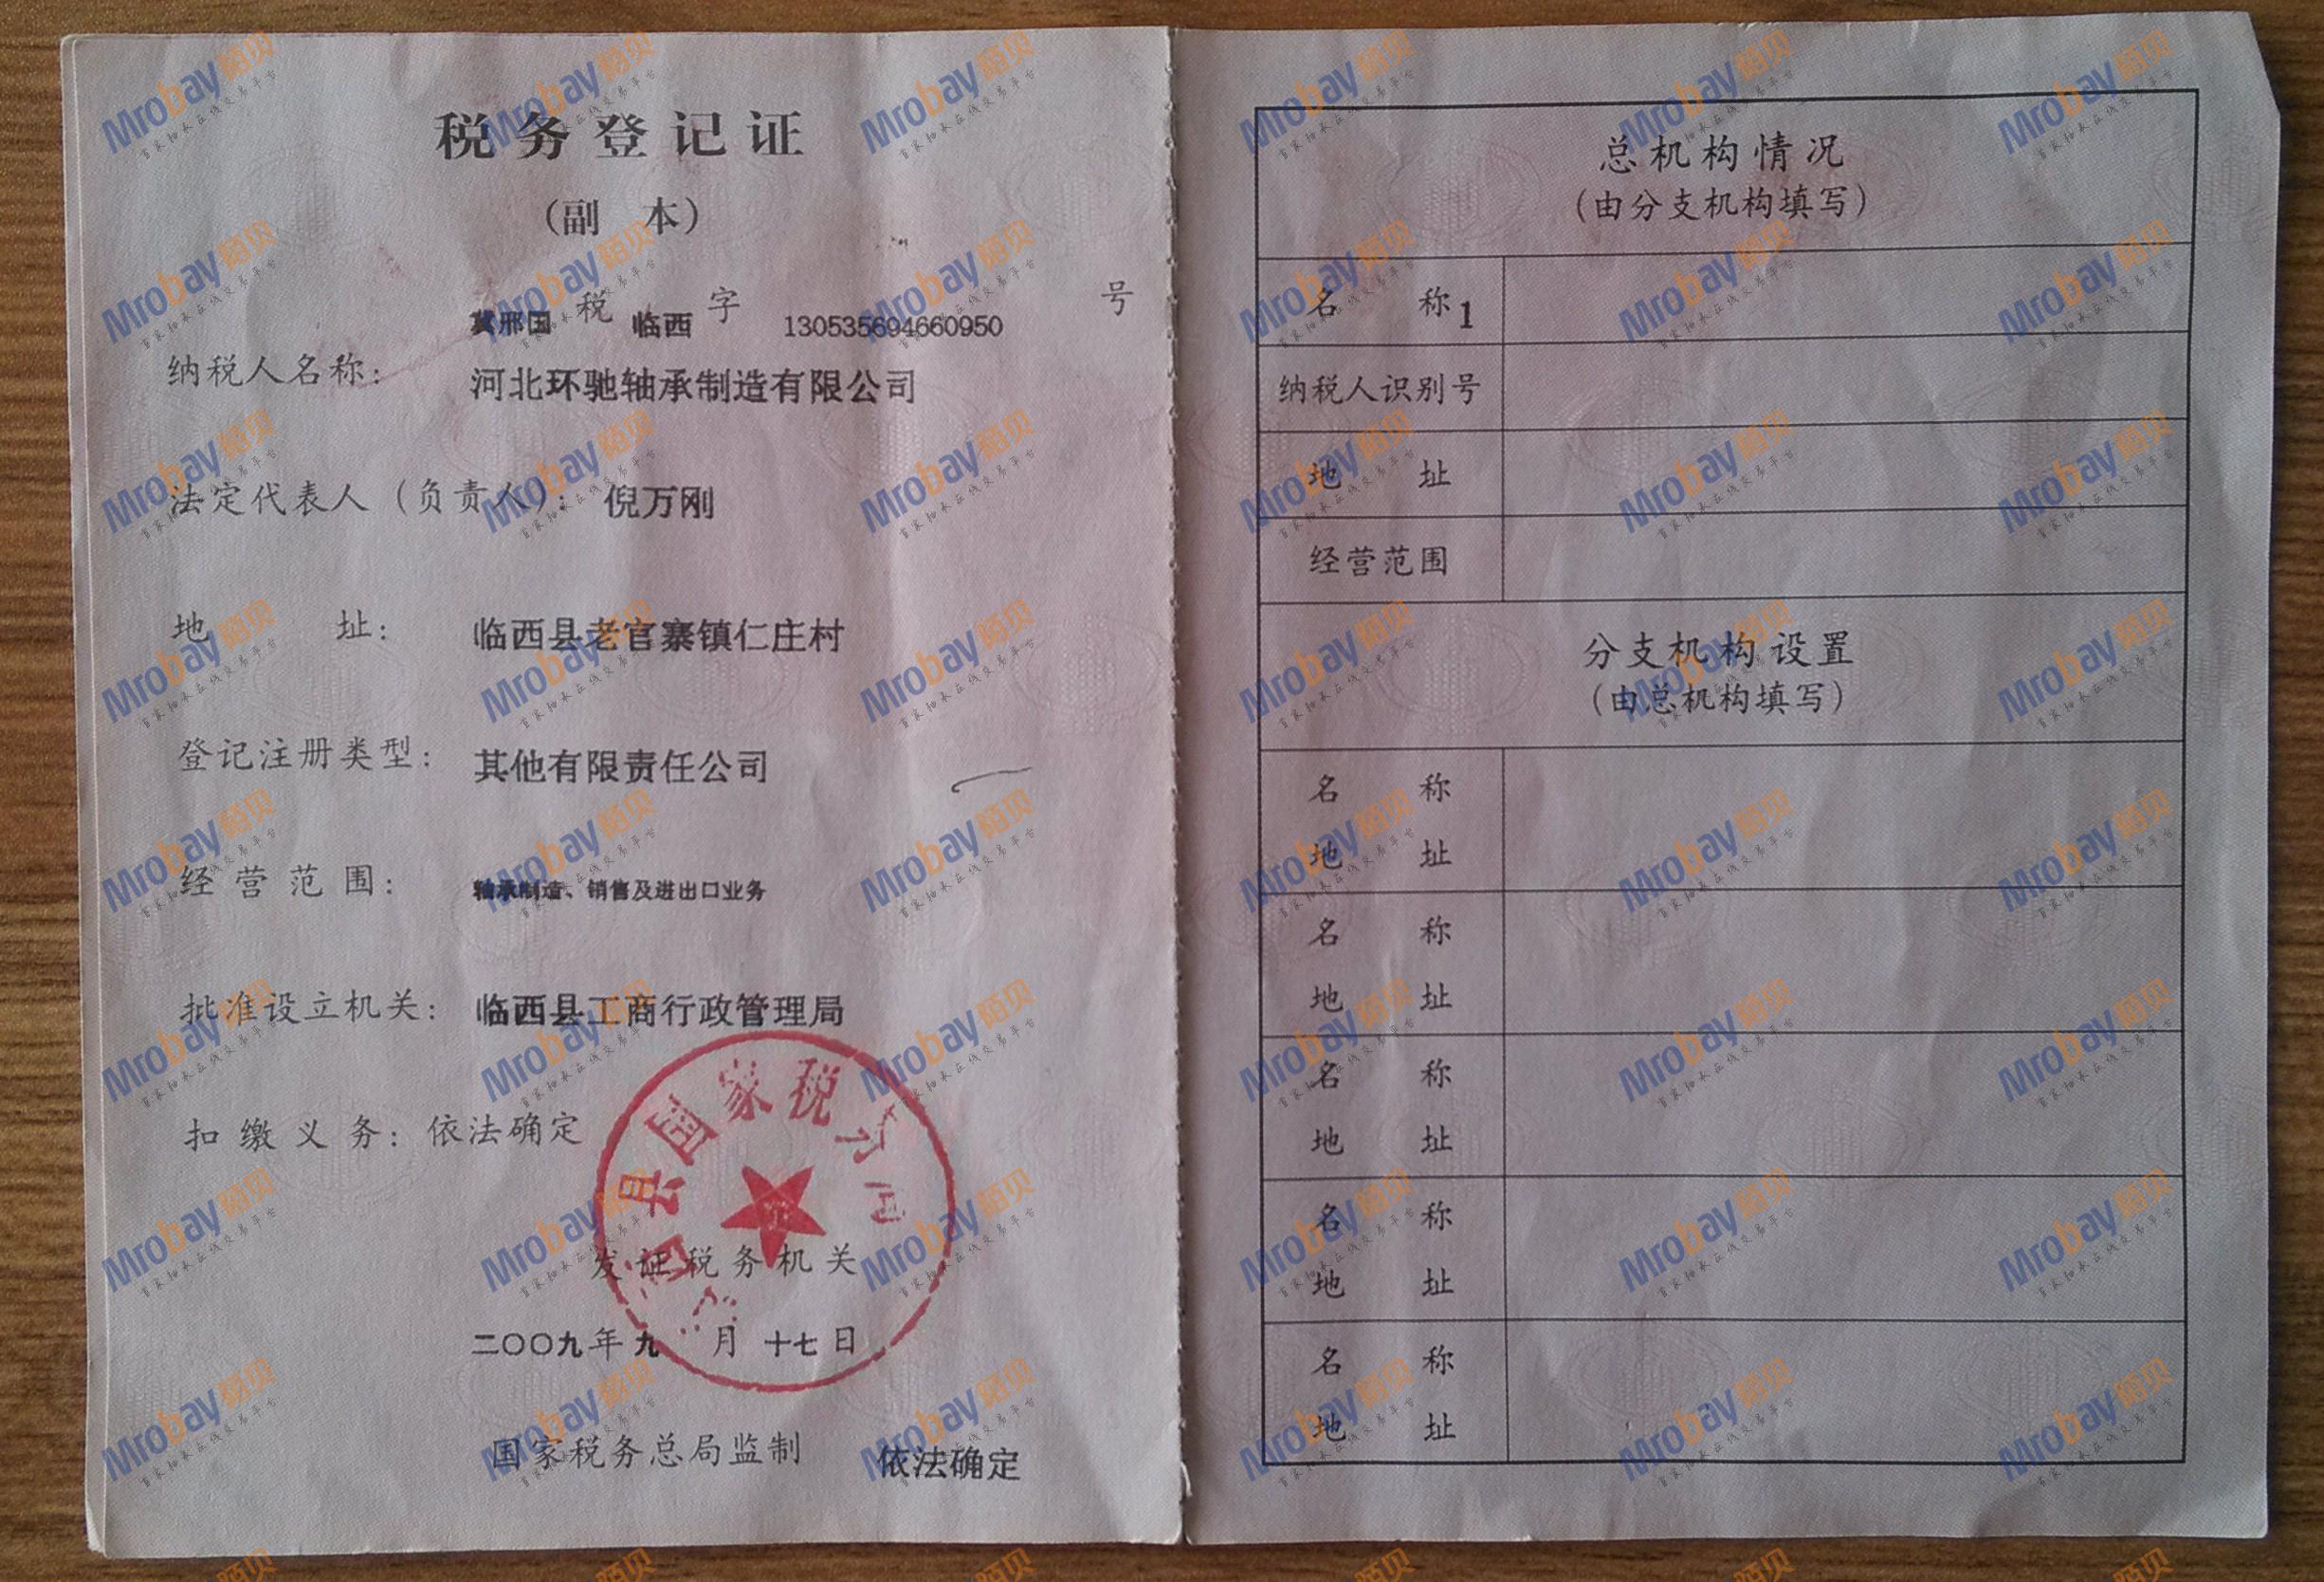 税务登记证
(副 本)
冀邢国 税 临西 字 130535694660950 号
纳税人名称: 河北环驰轴承制造有限公司
法定代表人(负责人): 倪万刚
地 址: 临西县老官寨镇仁庄村
登记注册类型: 其他有限责任公司
经营范围: 轴承制造、销售及进出口业务
批准设立机关: 临西县工商行政管理局
扣缴义务: 依法确定
县国家税
发证税务机关
二〇〇九年九月十七日
国家税务总局监制 依法确定
总机构情况
(由分支机构填写)
名 称 1
纳税人识别号
地 址
经营范围
分支机构设置
(由总机构填写)
名 称
地 址
名 称
地 址
名 称
地 址
名 称
地 址
名 称
地 址
Mrobay 陌贝